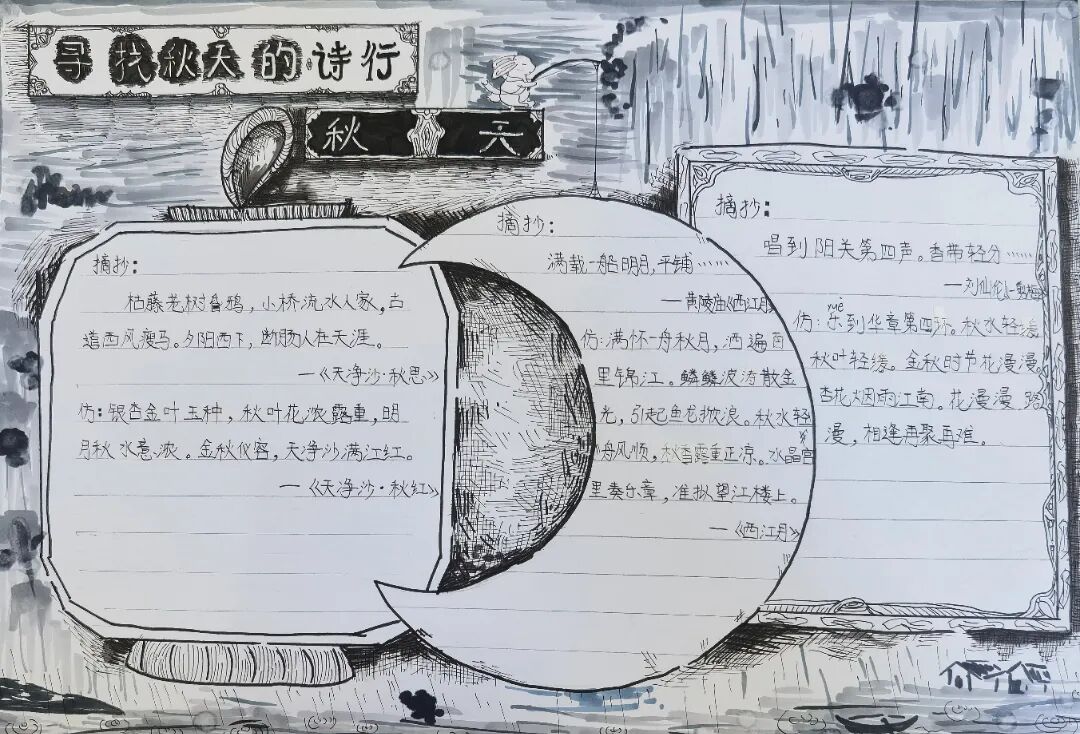 寻找秋天的诗行
秋天
摘抄：
枯藤老树昏鸦，小桥流水人家，古
道西风瘦马。夕阳西下，断肠人在天涯。
—《天净沙·秋思》
仿：银杏金叶玉种，秋叶花浓露重，明
月秋水意浓。金秋仪容，天净沙满江红。
—《天净沙·秋红》
摘抄：
满载一船明月，平铺……
—黄陵庙《西江月》
仿：满怀一舟秋月，洒遍百
里锦江。鳞鳞波涛散金
光，引起鱼龙掀浪。秋水轻
舟风顺，秋香露重正凉。水晶宫
里奏乐章，准拟望江楼上。
—《西江月》
摘抄：
唱到阳关第四声。香带轻分……
—刘仙伦
yuè
仿：乐到华章第四怀。秋水轻缓
秋叶轻缓。金秋时节花漫漫
杏花烟雨江南。花漫漫
漫，相逢再聚再难。